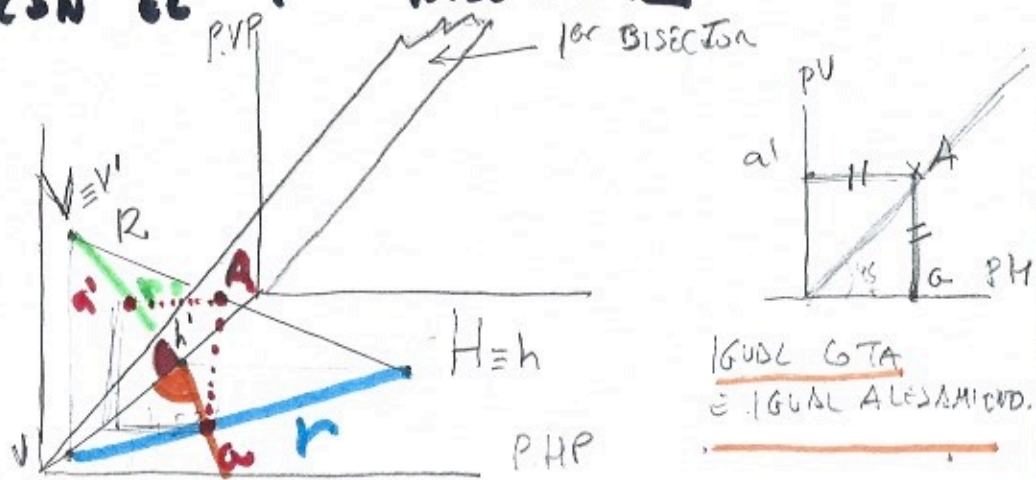 P.VP
1er BISECTOR
V≡V'
R
r'
a'
A
h'
H≡h
a
r
V
P.HP
PV
a'
A
45
a
PH
IGUAL COTA
E IGUAL ALEJAMIENTO.